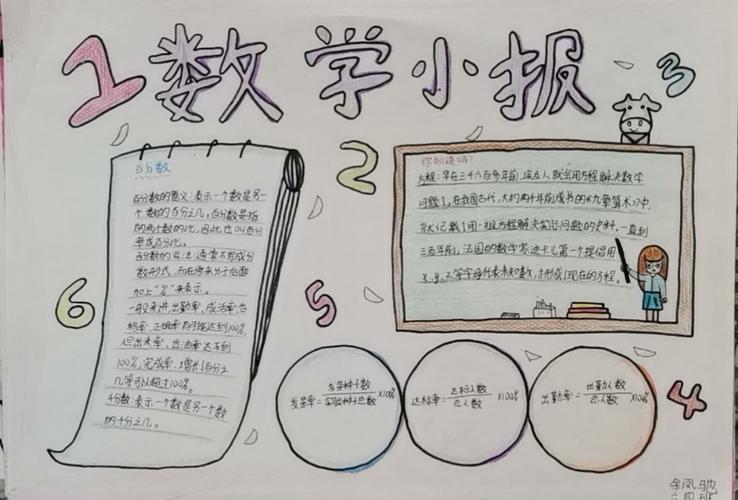 1 数学小报 3
2
6
5
4
百分数
百分数的意义:表示一个数是另一
个数的百分之几。百分数是指
的两个数的比,因此也叫百分
率或百分比。
百分数的写法:通常不写成分
数形式,而在原来分子后面
加上“%”来表示。
一般来讲,出勤率、成活率、合
格率、正确率可能达到100%,
但出米率、出油率达不到
100%,完成率、增长了百分之
几等可以超过100%。
千分数:表示一个数是另一个数
的千分之几。
你知道吗?
方程:早在三千六百多年前,埃及人就会用方程解决数学
问题了。在我国古代,大约两千年前成书的《九章算术》中,
就记载了用一组方程解决实际问题的史料。一直到
三百年前,法国的数学家迪卡儿第一个提倡用
x、y、z等字母代表未知数,才形成了现在的方程。
发芽率=发芽种子数/实验种子总数×100%
达标率=达标人数/总人数×100%
出勤率=出勤人数/总人数×100%
余凤驰